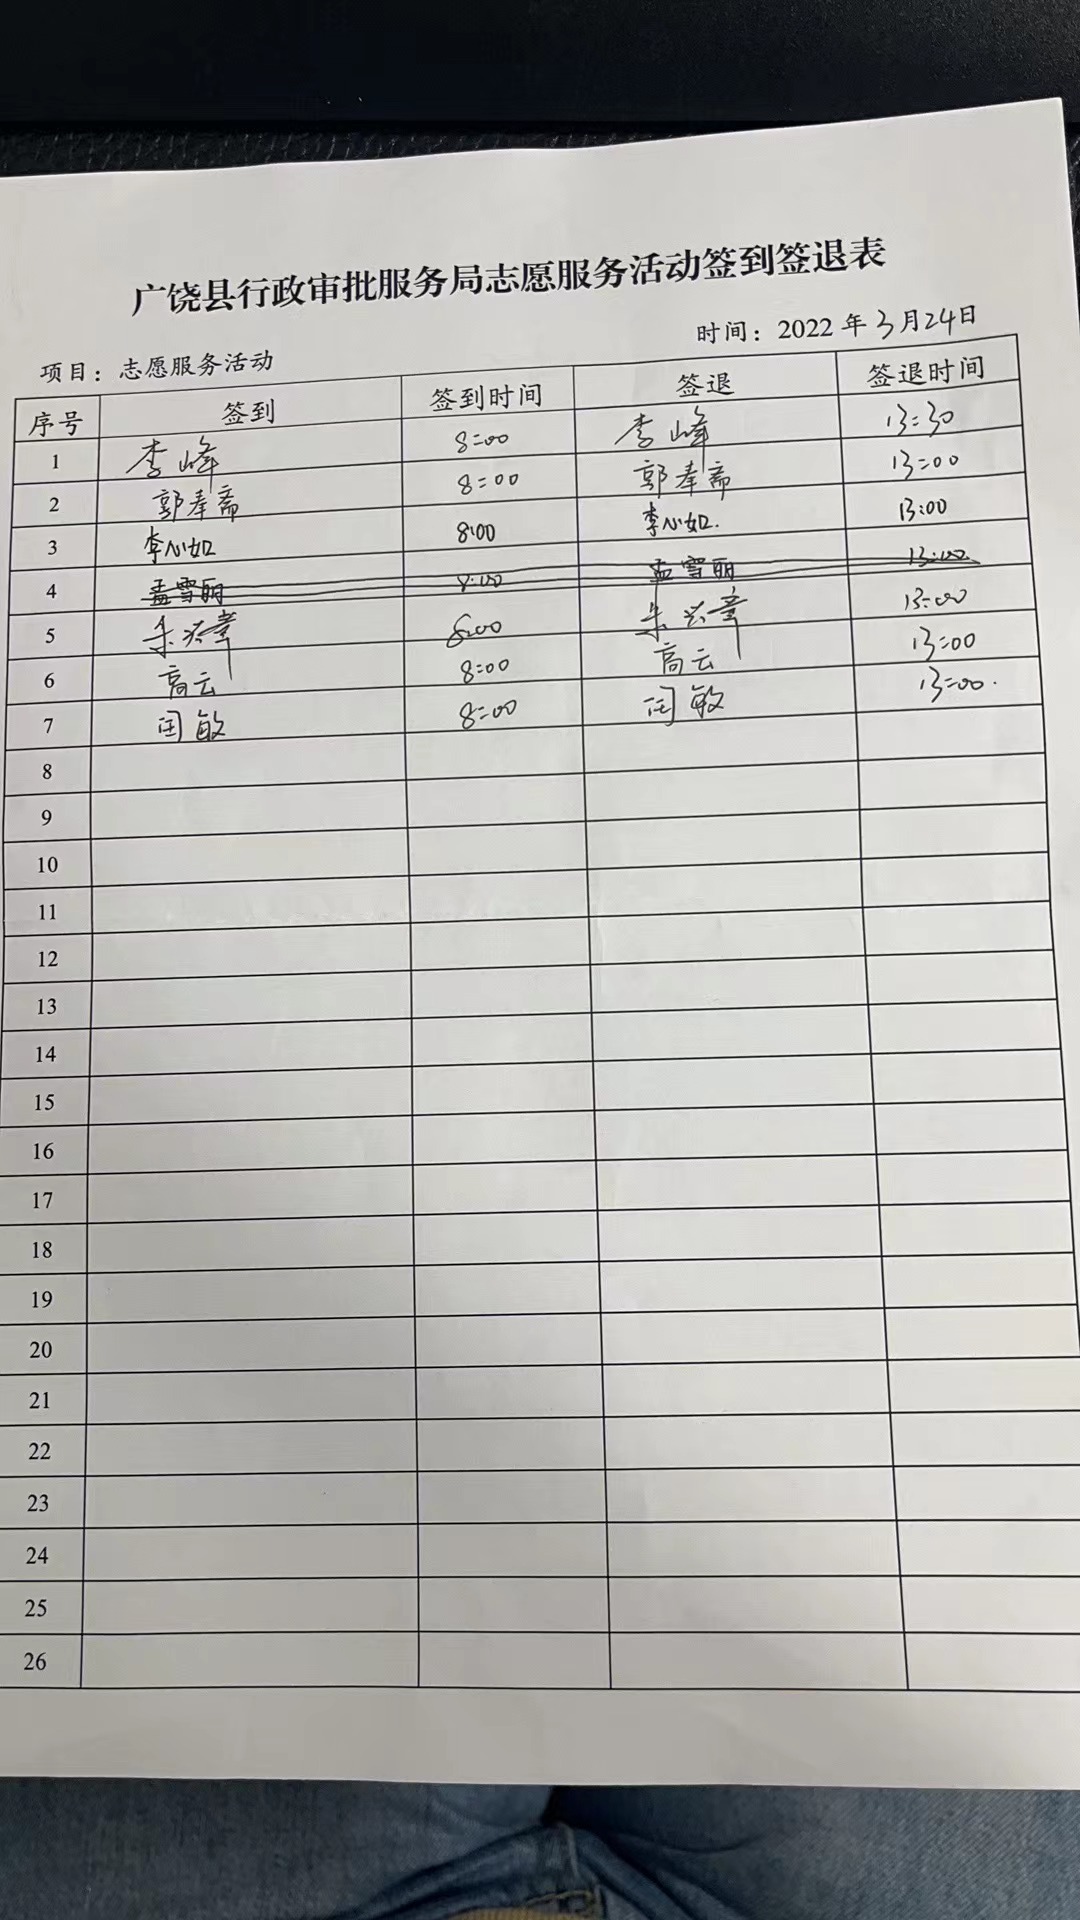 广饶县行政审批服务局志愿服务活动签到签退表
时间：2022年3月24日
项目：志愿服务活动
序号 签到 签到时间 签退 签退时间
1 李峰 8:00 李峰 13:30
2 郭奉斋 8:00 郭奉斋 13:00
3 李心如 8:00 李心如. 13:00
4 孟雪丽 8:00 孟雪丽 13:00
5 朱兴章 8:00 朱兴章 13:00
6 高云 8:00 高云 13:00
7 闰敏 8:00 闰敏 13:00.
8
9
10
11
12
13
14
15
16
17
18
19
20
21
22
23
24
25
26